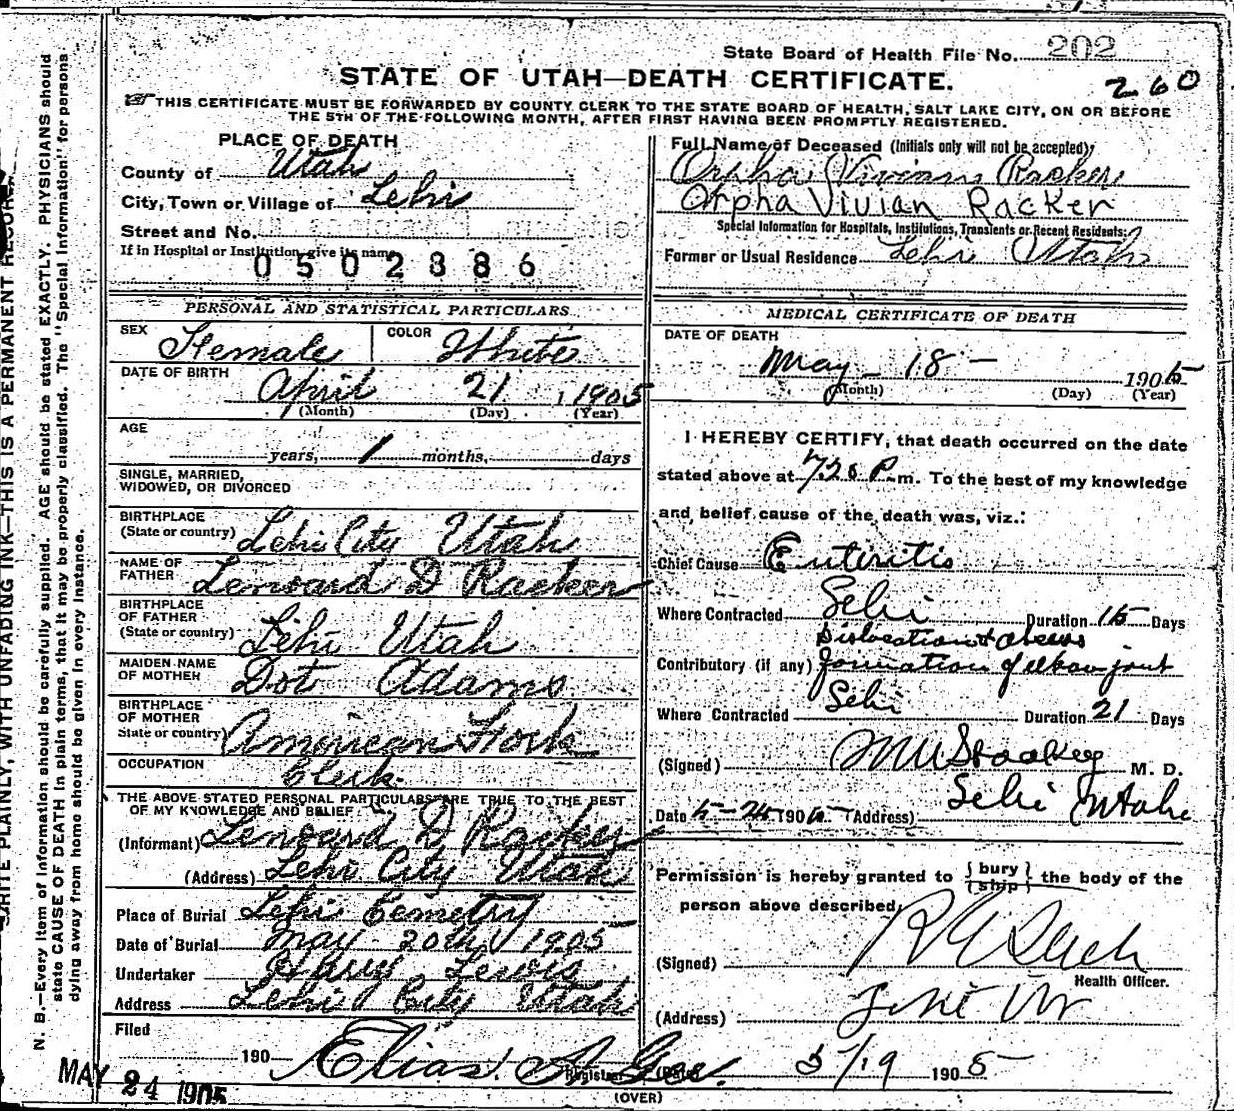 State Board of Health File No. 202
260
STATE OF UTAH—DEATH CERTIFICATE.
THIS CERTIFICATE MUST BE FORWARDED BY COUNTY CLERK TO THE STATE BOARD OF HEALTH, SALT LAKE CITY, ON OR BEFORE
THE 5TH OF THE FOLLOWING MONTH, AFTER FIRST HAVING BEEN PROMPTLY REGISTERED.
PLACE OF DEATH
County of Utah
City, Town or Village of Lehi
Street and No.
If in Hospital or Institution give its name
0502386
Full Name of Deceased (Initials only will not be accepted)
Orpha Vivian Racker
Orpha Vivian Racker
Special Information for Hospitals, Institutions, Transients or Recent Residents:
Former or Usual Residence Lehi Utah
PERSONAL AND STATISTICAL PARTICULARS
SEX Female COLOR White
DATE OF BIRTH
April 21, 1905
(Month) (Day) (Year)
AGE
years, 1 months, days
SINGLE, MARRIED,
WIDOWED, OR DIVORCED
BIRTHPLACE
(State or country) Lehi City Utah
NAME OF
FATHER Lenoard D Racker
BIRTHPLACE
OF FATHER
(State or country) Lehi Utah
MAIDEN NAME
OF MOTHER Dot Adams
BIRTHPLACE
OF MOTHER
State or country) American Fork
OCCUPATION Clerk
THE ABOVE STATED PERSONAL PARTICULARS ARE TRUE TO THE BEST
OF MY KNOWLEDGE AND BELIEF
(Informant) Lenoard D Racker
(Address) Lehi City Utah
Place of Burial Lehi Cemetry
Date of Burial May 20th 1905
Undertaker Lewis
Address Lehi City Utah
Filed
190 Elias A. Gee.
Registrar
MAY 24 1905
MEDICAL CERTIFICATE OF DEATH
DATE OF DEATH
May 18 — 1905
(Month) (Day) (Year)
I HEREBY CERTIFY, that death occurred on the date
stated above at 7.20 P.m. To the best of my knowledge
and belief cause of the death was, viz.:
Chief Cause Enteritis
Where Contracted Lehi Duration 15 Days
Dislocation &
Contributory (if any) formation of elbow joint
Where Contracted Lehi Duration 21 Days
(Signed) M. D.
Date 5-24 1905 (Address) Lehi Utah
Permission is hereby granted to {bury} {ship} the body of the
person above described,
(Signed)
Health Officer.
(Address)
5/19 1905
(OVER)
WRITE PLAINLY, WITH UNFADING INK—THIS IS A PERMANENT RECORD.
N. B.—Every item of information should be carefully supplied. AGE should be stated EXACTLY. PHYSICIANS should
state CAUSE OF DEATH in plain terms, that it may be properly classified. The "Special Information" for persons
dying away from home should be given in every instance.